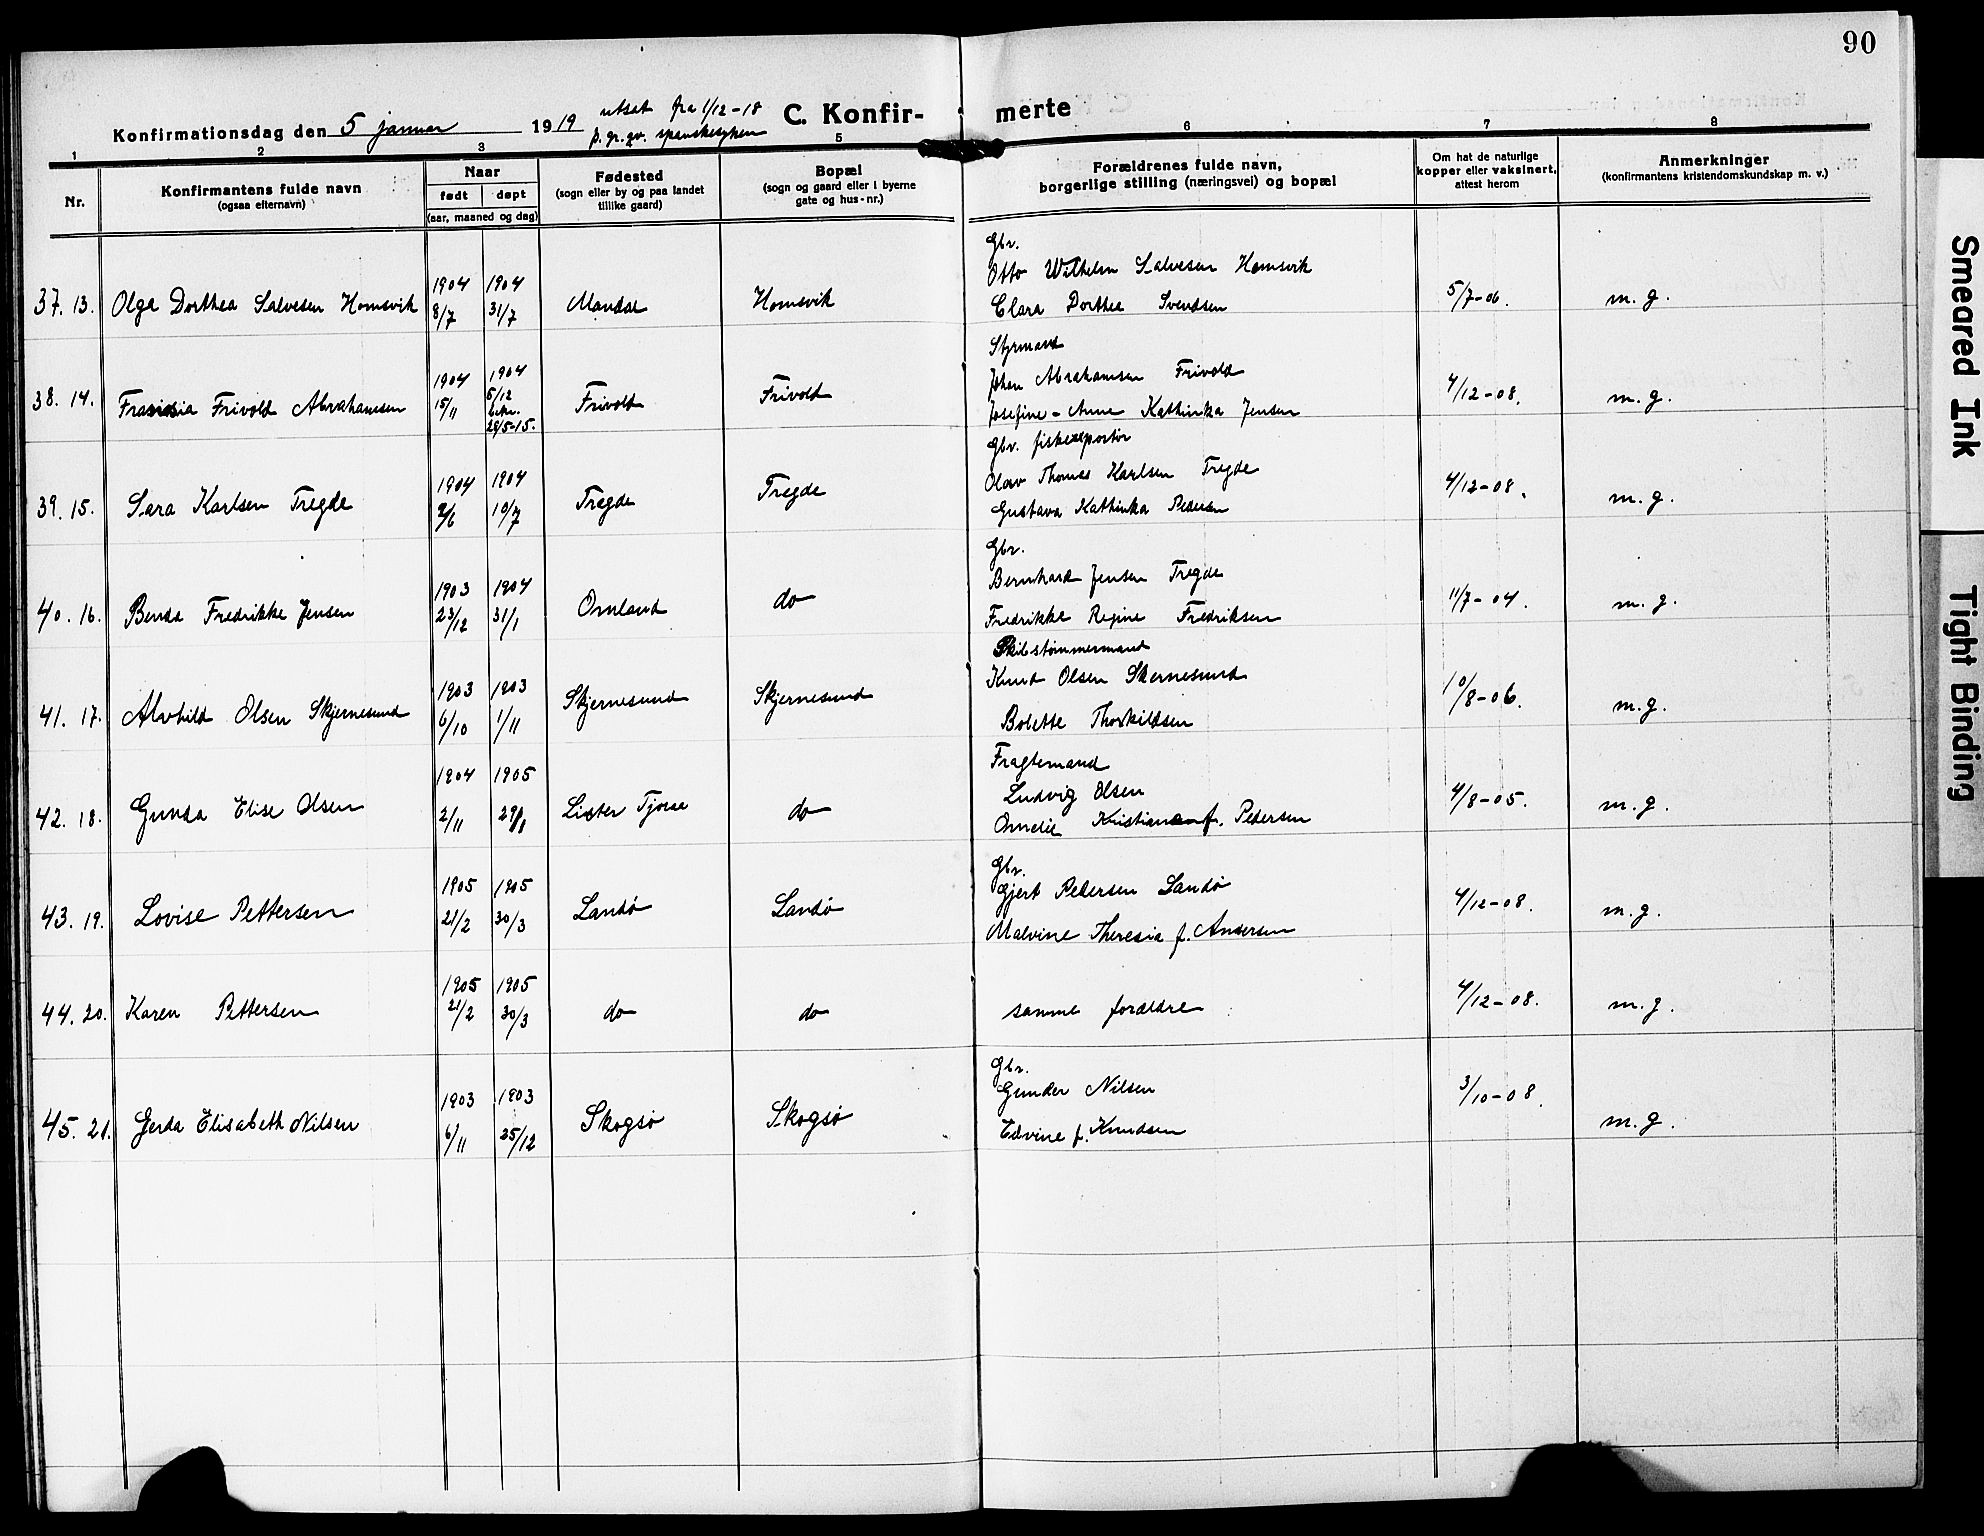 90
utsat fra 1/12-18
Konfirmationsdag den 5 januar 1919 p. gr. av. spanskesyken C. Konfirmerte
1 2 3 5 6 7 8
Nr.
Konfirmantens fulde navn
(ogsaa efternavn)
Naar
født døpt
(aar, maaned og dag)
Fødested
(sogn eller by og paa landet
tillike gaard)
Bopæl
(sogn og gaard eller i byerne
gate og hus-nr.)
Forældrenes fulde navn,
borgerlige stilling (næringsvei) og bopæl
Om hat de naturlige
kopper eller vaksinert,
attest herom
Anmerkninger
(konfirmantens kristendomskundskap m. v.)
Gbr.
Otto Wilhelm Salvesen Homsvik
1904 1904
37. 13. Olga Dorthea Salvesen Homsvik 8/7 31/7 Mandal Homsvik Clara Dorthea Svendsen 5/7-06. m. g.
Styrmand
1904 1904
Johan Abrahamsen Frivold
38. 14. Frivold Abrahamsen 15/11 5/12 Frivold Frivold Josefine-Anne Kathinka Jensen 4/12-08. m. g.
28/5-15.
Gbr. fiskeexportør
1904 1904
Olav Thomas Karlsen Tregde
39. 15. Sara Karlsen Tregde 2/6 10/7 Tregde Tregde Gustava Kathinka Pedersen 4/12-08. m. g.
Gbr.
1903 1904
Bernhard Jensen Tregde
40. 16. Benda Fredrikke Jensen 23/12 31/1 Omland do Fredrikke Regine Fredriksen 11/7-04. m. g.
Skibstømmermand
1903 1903
Knud Olsen Skernesund
41. 17. Alvhild Olsen Skjernesund 6/10 1/11 Skjernesund Skjernesund Bolette Thorkildsen 10/8-06. m. g.
Fragtemand
1904 1905
Ludvig Olsen
42. 18. Gunda Elise Olsen 2/11 29/1 Lister Tjorve do Omelie Kristiane f. Pedersen 4/8-05. m. g.
Gbr.
1905 1905
Gjert Pedersen Landø
43. 19. Lovise Pettersen 21/2 30/3 Landø Landø Malvine Theresia f. Andersen 4/12-08. m. g.
1905 1905
44. 20. Karen Pettersen 21/2 30/3 do do samme forældre 4/12-08. m. g.
Gbr.
1903 1903
Gunder Nilsen
45. 21. Gerda Elisabeth Nilsen 6/11 25/12 Skogsø Skogsø Edvine f. Knudsen 3/10-08. m. g.
Smeared Ink
Tight Binding